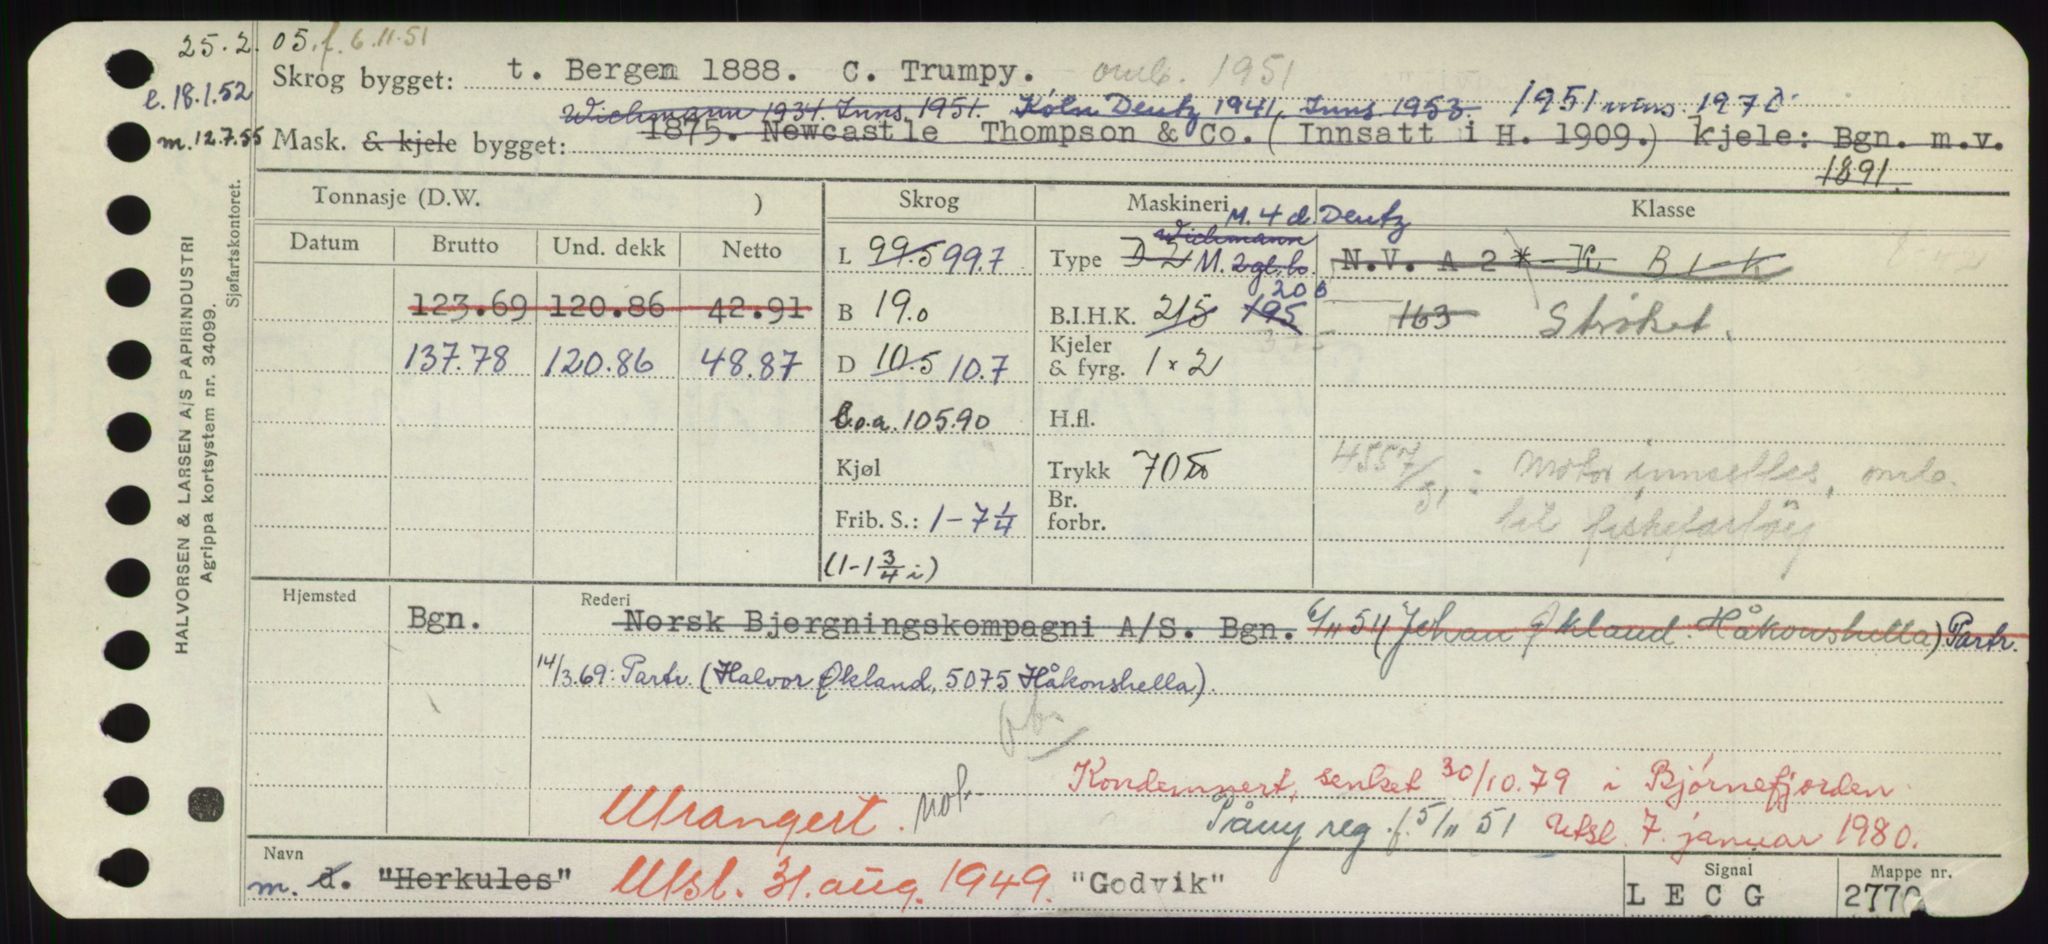 25.2.05. f. 6.11.51
l. 18.1.52
m. 12.7.55
Skrog bygget: t. Bergen 1888. C. Trumpy. omb. 1951
Wichmann 1934. Inns. 1951. Köln Deutz 1941, Inns. 1953. 1951 inns. 1970
Mask. & kjele bygget: 1875. Newcastle Thompson & Co. (Innsatt i H. 1909.) kjele: Bgn. m.v.
1891.
Tonnasje (D.W. ) Skrog Maskineri Klasse
M. 4 d. Deutz
Datum Brutto Und. dekk Netto
Wichmann
L 99.5 99.7 Type D 2 M. 2 gl. bo. N.V. A 2 * K B 1 K
123.69 120.86 42.91
B 19.0 B.I.H.K. 215 195 206 163 Strøket.
137.78 120.86 48.87
D 10.5 10.7 Kjeler & fyrg. 1 x 2
l.o.a. 105.90 H.fl.
Kjøl Trykk 70
4557/51: Motor innsettes, omb.
til fiskefartøy
Frib. S.: 1-7 1/4 Br. forbr.
(1-1 3/4 i)
Hjemsted Rederi
Bgn. Norsk Bjergningskompagni A/S. Bgn. 6/11 51 (Johan Økland. Håkonshella) Partr.
14/3.69: Partr. (Halvor Økland, 5075 Håkonshella).
Kondemnert, senket 30/10.79 i Bjørnefjorden
Utrangert. not.
Påny reg. f. 5/11 51 Utsl. 7. januar 1980.
Navn Signal Mappe nr.
m. d. "Herkules" Utsl. 31. aug. 1949. "Godvik" LECG 2770
HALVORSEN & LARSEN A/S PAPIRINDUSTRI
Agrippa kortsystem nr. 34099.
Sjøfartskontoret.